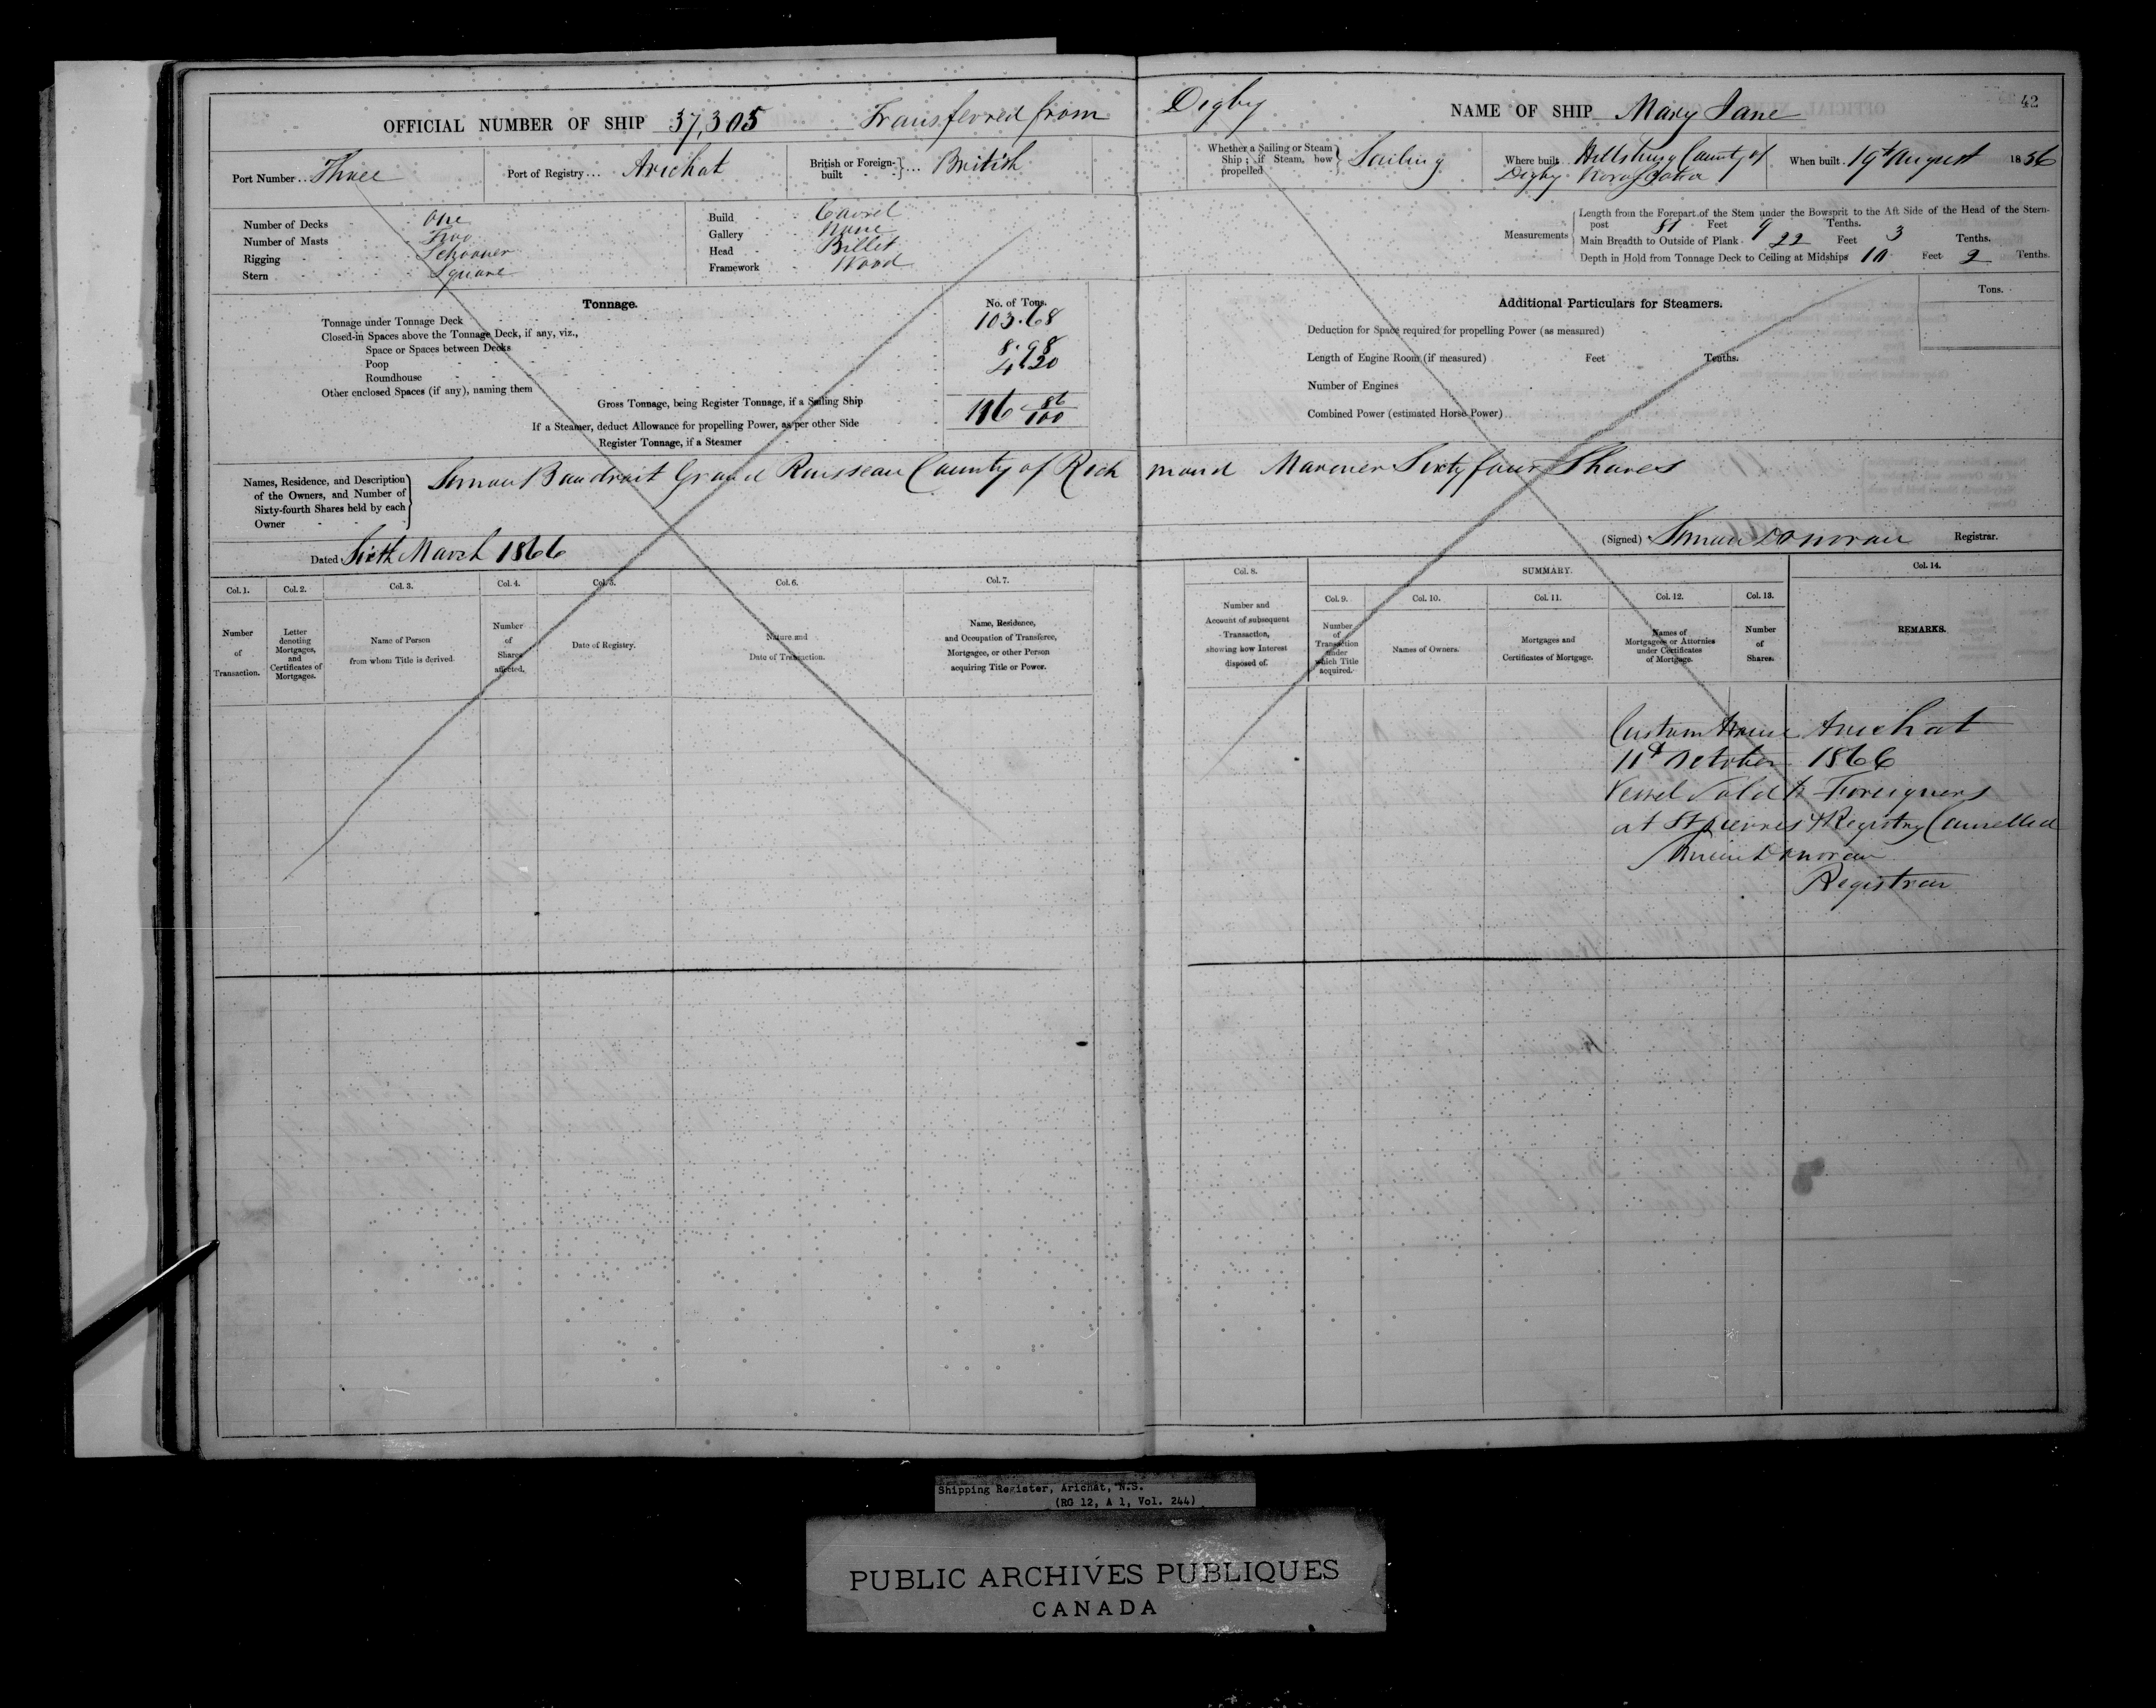 OFFICIAL NUMBER OF SHIP 37,305 Transferred from Digby NAME OF SHIP Mary Jane 42
Port Number... Three Port of Registry... Arichat British or Foreign-built ... British
Whether a Sailing or Steam Ship; if Steam, how propelled Sailing Where built Hillsburg County of When built 19th August 1856
Digby Nova Scotia
Number of Decks One
Number of Masts Two
Rigging Schooner
Stern Square
Build Carvel
Gallery None
Head Billet
Framework Wood
Measurements
Length from the Forepart of the Stem under the Bowsprit to the Aft Side of the Head of the Stern-
post 81 Feet 9 Tenths.
Main Breadth to Outside of Plank 22 Feet 3 Tenths.
Depth in Hold from Tonnage Deck to Ceiling at Midships 10 Feet 2 Tenths.
Tonnage. No. of Tons.
Tonnage under Tonnage Deck 103.68
Closed-in Spaces above the Tonnage Deck, if any, viz.,
Space or Spaces between Decks 8.98
Poop 4.20
Roundhouse
Other enclosed Spaces (if any), naming them
Gross Tonnage, being Register Tonnage, if a Sailing Ship 116 86/100
If a Steamer, deduct Allowance for propelling Power, as per other Side
Register Tonnage, if a Steamer
Additional Particulars for Steamers. Tons.
Deduction for Space required for propelling Power (as measured)
Length of Engine Room (if measured) Feet Tenths.
Number of Engines
Combined Power (estimated Horse Power)
Names, Residence, and Description
of the Owners, and Number of
Sixty-fourth Shares held by each
Owner
Simon Baudroit Grand Ruisseau County of Richmond Mariner Sixty four Shares
Dated Sixth March 1866 (Signed) Donovan Registrar.
Col. 1. Col. 2. Col. 3. Col. 4. Col. 5. Col. 6. Col. 7. Col. 8. SUMMARY. Col. 14.
Col. 9. Col. 10. Col. 11. Col. 12. Col. 13.
Number of Transaction.
Letter denoting Mortgages, and Certificates of Mortgages.
Name of Person from whom Title is derived.
Number of Shares affected.
Date of Registry.
Nature and Date of Transaction.
Name, Residence, and Occupation of Transferee, Mortgagee, or other Person acquiring Title or Power.
Number and Account of subsequent Transaction, showing how Interest disposed of.
Number of Transaction under which Title acquired.
Names of Owners.
Mortgages and Certificates of Mortgage.
Names of Mortgagees or Attornies under Certificates of Mortgage.
Number of Shares.
REMARKS.
Custom House Arichat
11th October 1866
Vessel Sold to Foreigners
at St pierres & Registry Cancelled
Donovan
Registrar
Shipping Register, Arichat, N.S.
(RG 12, A 1, Vol. 244)
PUBLIC ARCHIVES PUBLIQUES
CANADA